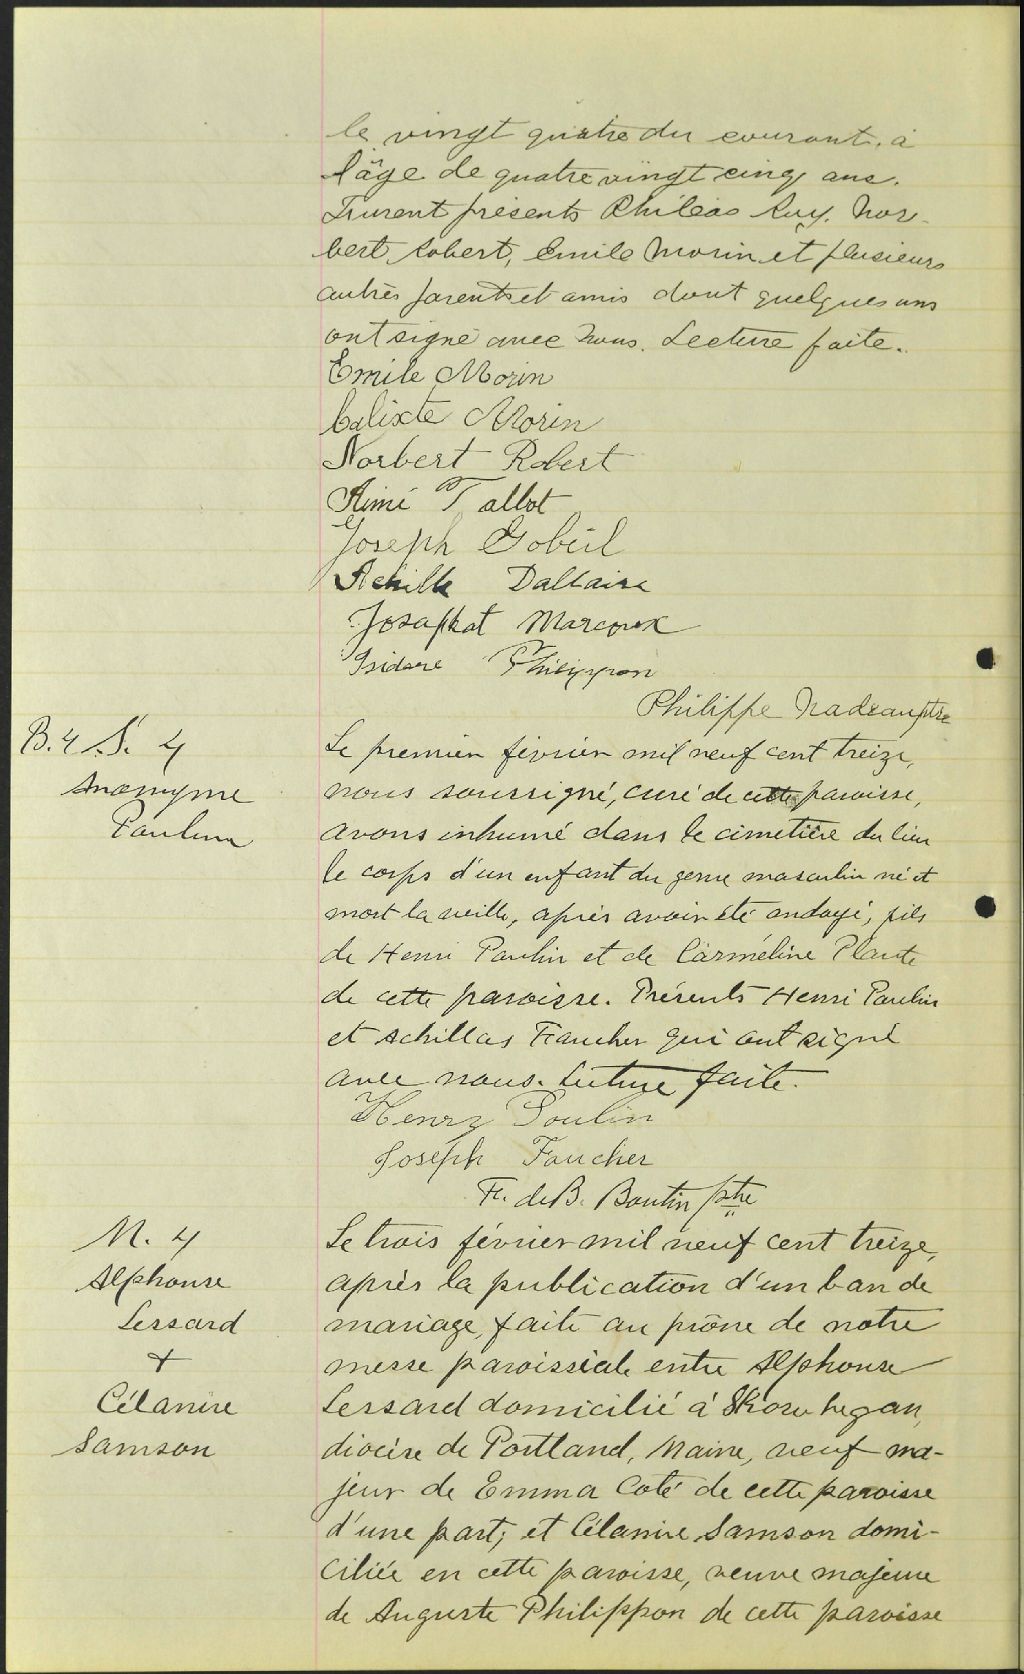 le vingt quatre du courant, à
l'âge de quatre vingt cinq ans.
Furent présents Philéas Ruy. Nor-
bert Robert, Emile Morin et plusieurs
autres parents et amis dont quelques uns
ont signé avec nous. Lecture faite.
Emile Morin
Calixte Morin
Norbert Robert
Aimé Talbot
Joseph Gobeil
Achille Dallaire
Josaphat Marcoux
Isidore Philippon
Philippe Nadeau ptre
B. 4 S. 4
Anonyme
Paulin
Le premier février mil neuf cent treize,
nous soussigné, curé de cette paroisse,
avons inhumé dans le cimetière du lieu
le corps d'un enfant du genre masculin né et
mort la veille, après avoir été ondoyé, fils
de Henri Paulin et de Carméline Plante
de cette paroisse. Présents Henri Paulin
et Achillas Faucher qui ont signé
avec nous. Lecture faite.
Henry Poulin
Joseph Faucher
F. de B. Boutin ptre
M. 4
Alphonse
Lessard
+
Célanire
Samson
Le trois février mil neuf cent treize,
après la publication d'un ban de
mariage, faite au prône de notre
messe paroissiale entre Alphonse
Lessard domicilié à Skowhegan,
diocèse de Portland, Maine, veuf ma-
jeur de Emma Coté de cette paroisse
d'une part; et Célanire Samson domi-
ciliée en cette paroisse, veuve majeure
de Auguste Philippon de cette paroisse